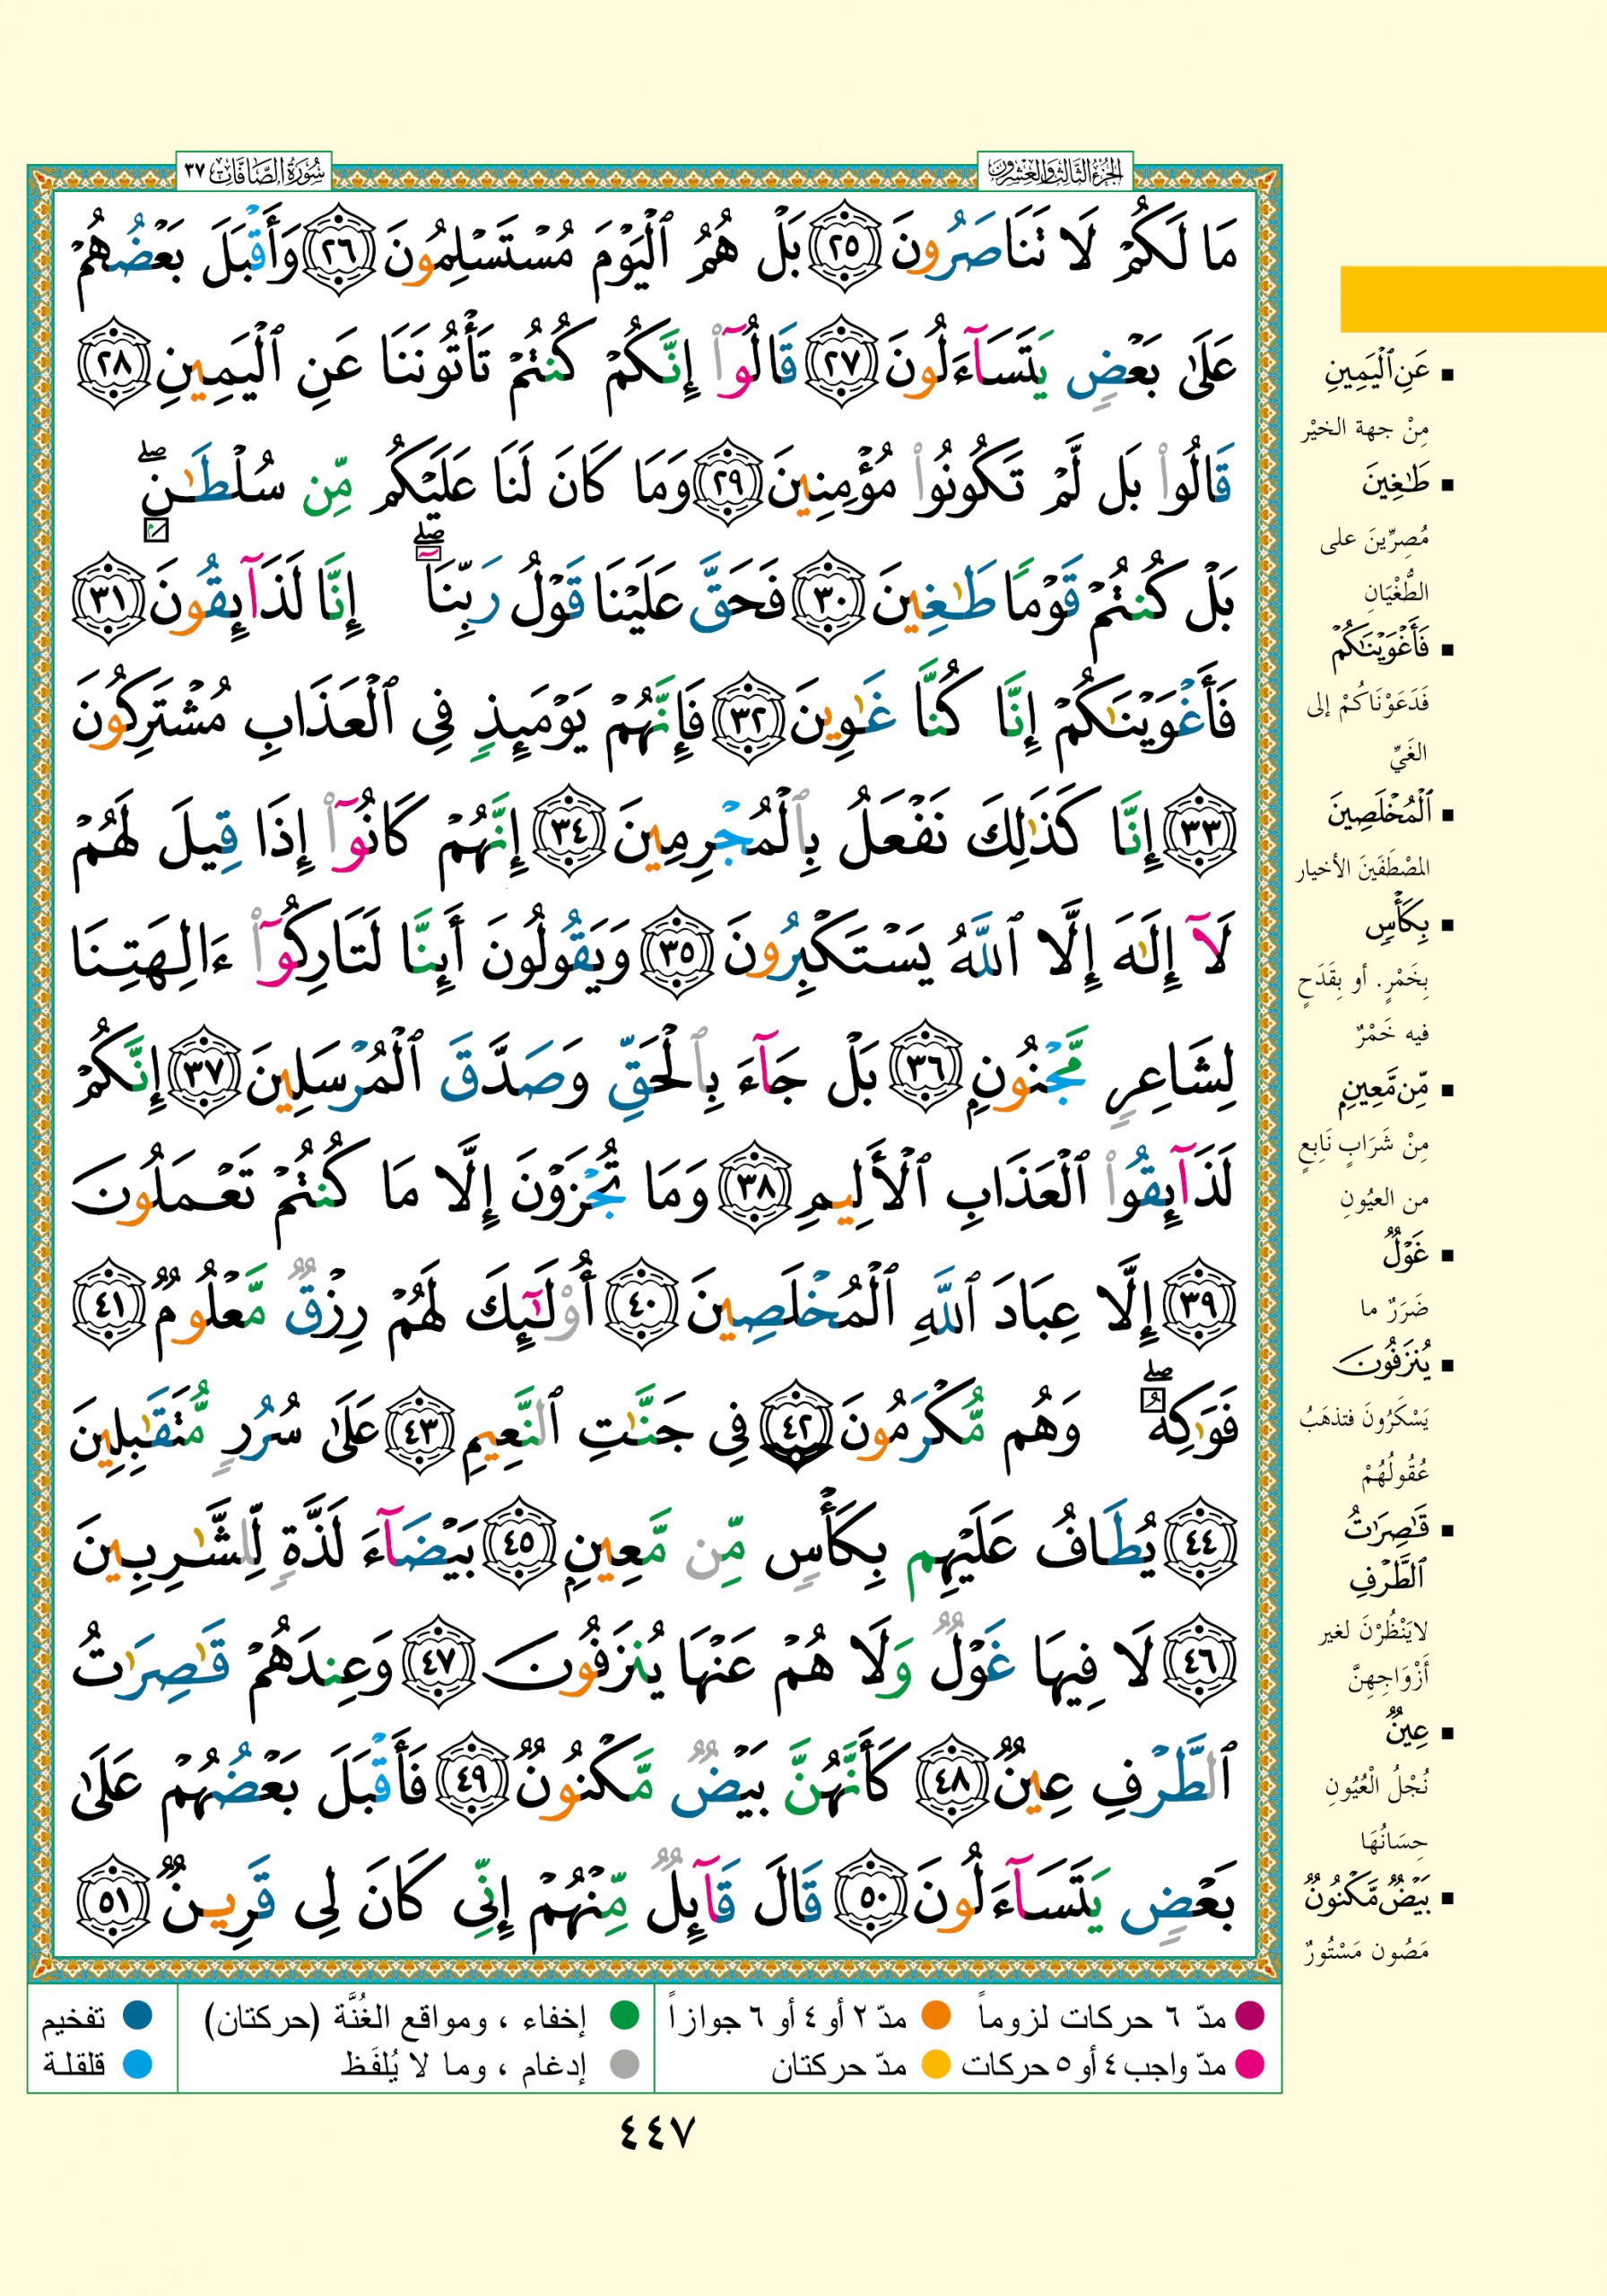 الجزء الثالث والعشرون
سُورَةُ الصَّافَّات ٣٧
مَا لَكُمْ لَا تَنَاصَرُونَ ٢٥ بَلْ هُمُ ٱلْيَوْمَ مُسْتَسْلِمُونَ ٢٦ وَأَقْبَلَ بَعْضُهُمْ
عَلَىٰ بَعْضٍ يَتَسَآءَلُونَ ٢٧ قَالُوٓا۟ إِنَّكُمْ كُنتُمْ تَأْتُونَنَا عَنِ ٱلْيَمِينِ ٢٨
قَالُوا۟ بَل لَّمْ تَكُونُوا۟ مُؤْمِنِينَ ٢٩ وَمَا كَانَ لَنَا عَلَيْكُم مِّن سُلْطَـٰنٍۭ ۖ
بَلْ كُنتُمْ قَوْمًا طَـٰغِينَ ٣٠ فَحَقَّ عَلَيْنَا قَوْلُ رَبِّنَآ ۖ إِنَّا لَذَآئِقُونَ ٣١
فَأَغْوَيْنَـٰكُمْ إِنَّا كُنَّا غَـٰوِينَ ٣٢ فَإِنَّهُمْ يَوْمَئِذٍ فِى ٱلْعَذَابِ مُشْتَرِكُونَ
٣٣ إِنَّا كَذَٰلِكَ نَفْعَلُ بِٱلْمُجْرِمِينَ ٣٤ إِنَّهُمْ كَانُوٓا۟ إِذَا قِيلَ لَهُمْ
لَآ إِلَـٰهَ إِلَّا ٱللَّهُ يَسْتَكْبِرُونَ ٣٥ وَيَقُولُونَ أَئِنَّا لَتَارِكُوٓا۟ ءَالِهَتِنَا
لِشَاعِرٍ مَّجْنُونٍۭ ٣٦ بَلْ جَآءَ بِٱلْحَقِّ وَصَدَّقَ ٱلْمُرْسَلِينَ ٣٧ إِنَّكُمْ
لَذَآئِقُوا۟ ٱلْعَذَابِ ٱلْأَلِيمِ ٣٨ وَمَا تُجْزَوْنَ إِلَّا مَا كُنتُمْ تَعْمَلُونَ
٣٩ إِلَّا عِبَادَ ٱللَّهِ ٱلْمُخْلَصِينَ ٤٠ أُو۟لَـٰٓئِكَ لَهُمْ رِزْقٌ مَّعْلُومٌ ٤١
فَوَٰكِهُ ۖ وَهُم مُّكْرَمُونَ ٤٢ فِى جَنَّـٰتِ ٱلنَّعِيمِ ٤٣ عَلَىٰ سُرُرٍ مُّتَقَـٰبِلِينَ
٤٤ يُطَافُ عَلَيْهِم بِكَأْسٍ مِّن مَّعِينٍۭ ٤٥ بَيْضَآءَ لَذَّةٍ لِّلشَّـٰرِبِينَ
٤٦ لَا فِيهَا غَوْلٌ وَلَا هُمْ عَنْهَا يُنزَفُونَ ٤٧ وَعِندَهُمْ قَـٰصِرَٰتُ
ٱلطَّرْفِ عِينٌ ٤٨ كَأَنَّهُنَّ بَيْضٌ مَّكْنُونٌ ٤٩ فَأَقْبَلَ بَعْضُهُمْ عَلَىٰ
بَعْضٍ يَتَسَآءَلُونَ ٥٠ قَالَ قَآئِلٌ مِّنْهُمْ إِنِّى كَانَ لِى قَرِينٌ ٥١
▪ عَنِ ٱلْيَمِينِ
مِنْ جهة الخيْر
▪ طَـٰغِينَ
مُصِرِّينَ على
الطُّغْيَانِ
▪ فَأَغْوَيْنَـٰكُمْ
فَدَعَوْنَاكُمْ إلى
الغَيِّ
▪ ٱلْمُخْلَصِينَ
المصْطَفَينَ الأخيار
▪ بِكَأْسٍ
بِخَمْرٍ. أو بِقَدَحٍ
فيه خَمْرٌ
▪ مِّن مَّعِينٍۭ
مِنْ شَرَابٍ نَابِعٍ
من العيُونِ
▪ غَوْلٌ
ضَرَرٌ ما
▪ يُنزَفُونَ
يَسْكَرُونَ فتذهَبُ
عُقُولُهُمْ
▪ قَـٰصِرَٰتُ
ٱلطَّرْفِ
لايَنْظُرْنَ لغير
أَزْوَاجِهِنَّ
▪ عِينٌ
نُجْلُ الْعُيُونِ
حِسَانُهَا
▪ بَيْضٌ مَّكْنُونٌ
مَصُون مَسْتُورٌ
مدّ ٦ حركات لزوماً مدّ ٢ أو ٤ أو ٦ جوازاً إخفاء ، ومواقع الغُنَّة (حركتان) تفخيم
مدّ واجب ٤ أو ٥ حركات مدّ حركتان إدغام ، وما لا يُلفَظ قلقلة
٤٤٧